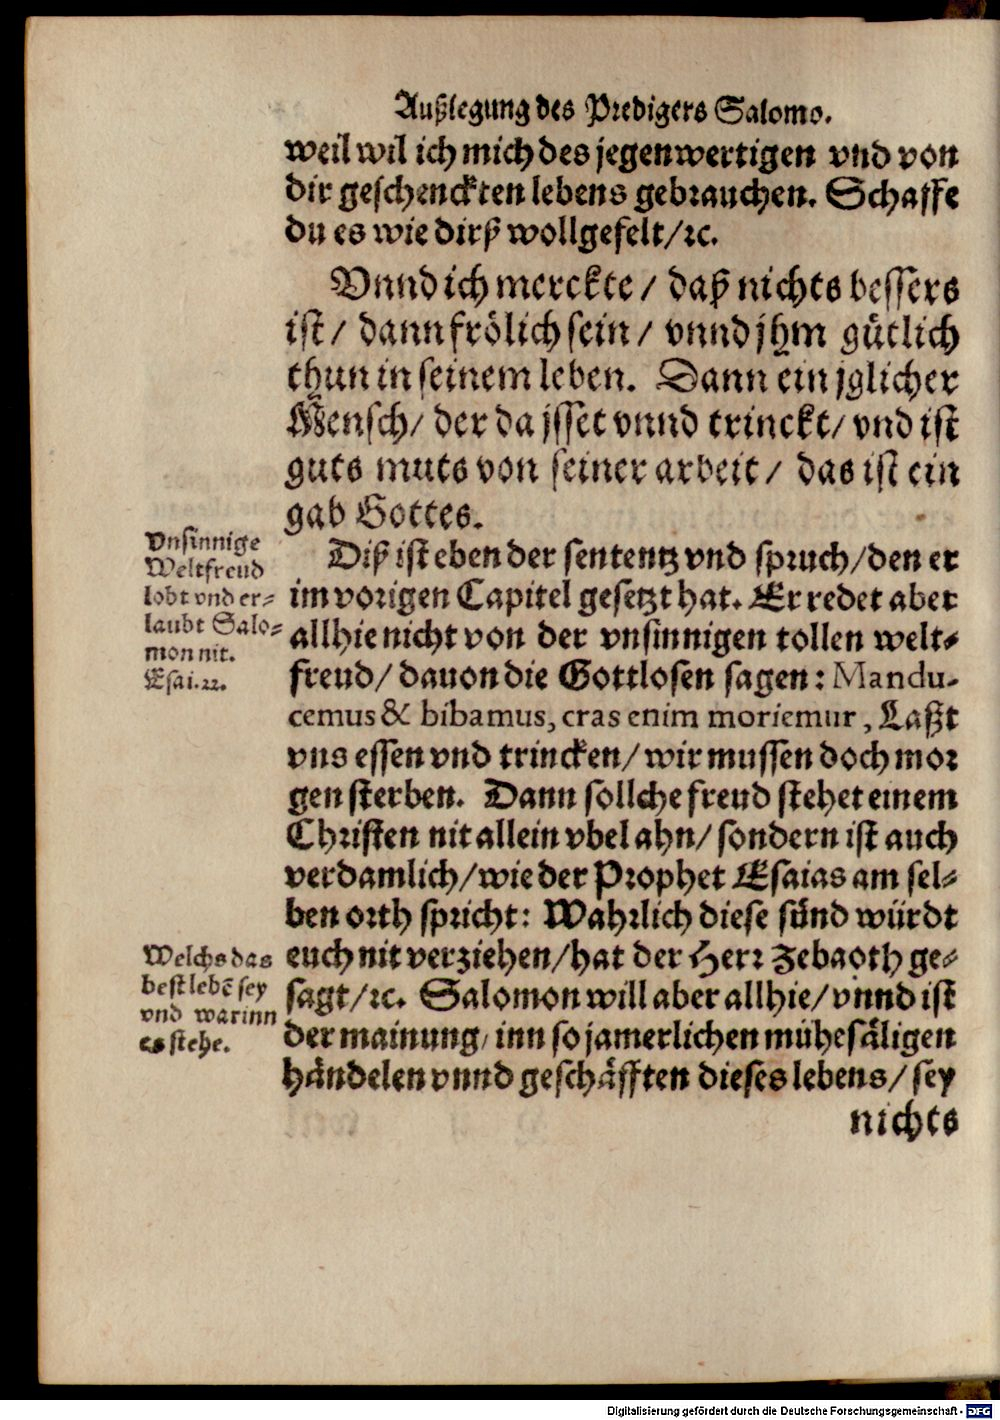 Außlegung des Predigers Salomo.
weil wil ich mich des jegenwertigen vnd von
dir geschenckten lebens gebrauchen. Schaffe
du es wie dirß wollgefelt/ꝛc.
Vnnd ich merckte/ daß nichts bessers
ist/ dann frölich sein/ vnnd jhm gütlich
thun in seinem leben. Dann ein jglicher
Mensch/ der da jsset vnnd trinckt/ vnd ist
guts muts von seiner arbeit/ das ist ein
gab Gottes.
Vnsinnige
Weltfreud
lobt vnd er-
laubt Salo-
mon nit.
Esai.22.
Diß ist eben der sententz vnd spruch/den er
im vorigen Capitel gesetzt hat. Er redet aber
allhie nicht von der vnsinnigen tollen welt-
freud/ dauon die Gottlosen sagen: Mandu-
cemus & bibamus, cras enim moriemur, Laßt
vns essen vnd trincken/ wir mussen doch mor
gen sterben. Dann sollche freud stehet einem
Christen nit allein vbel ahn/ sondern ist auch
verdamlich/wie der Prophet Esaias am sel-
ben orth spricht: Wahrlich diese sünd würdt
Welchs das
best lebē sey
vnd warinn
es stehe.
euch nit verziehen/hat der Herr Zebaoth ge-
sagt/ꝛc. Salomon will aber allhie/ vnnd ist
der mainung/ inn so jamerlichen mühesäligen
händelen vnnd geschäfften dieses lebens/ sey
nichts
Digitalisierung gefördert durch die Deutsche Forschungsgemeinschaft - DFG